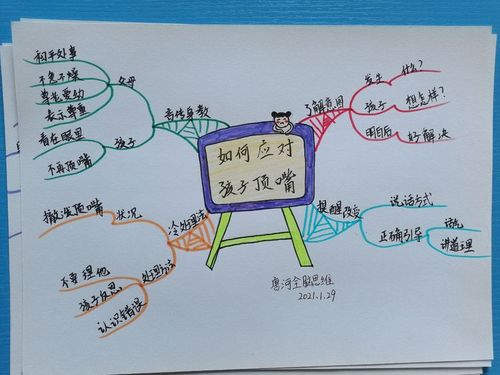 如何应对
孩子顶嘴
了解意图
发生
什么?
孩子
想怎样?
明白后
好解决
提醒改变
说话方式
正确引导
讲道理
冷处理法
状况
撒泼顶嘴
处理方法
不要理他
孩子反思
认识错误
言传身教
父母
和平处事
不急不燥
尊老爱幼
表示尊重
孩子
看在眼里
不再顶嘴
唐河全脑思维
2021.1.29